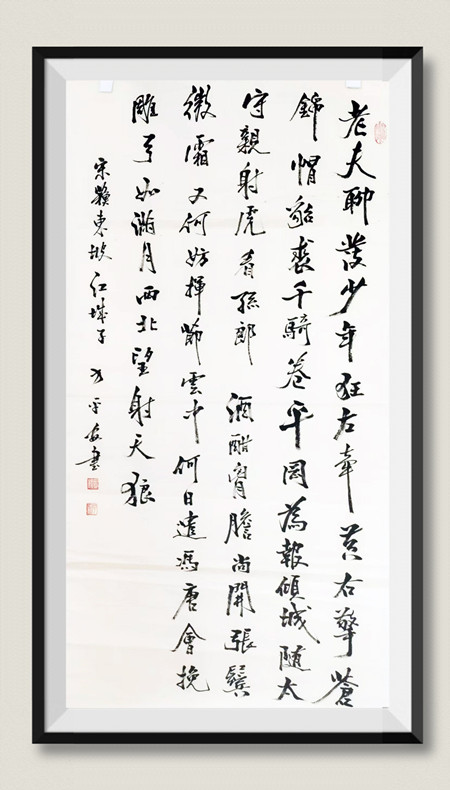 老夫聊發少年狂左牽黃右擎蒼
錦帽貂裘千騎卷平岡為報傾城隨太
守親射虎看孫郎 酒酣胷膽尚開張鬢
微霜又何妨節雲中何日遣馮唐會挽
雕弓如滿月西北望射天狼
宋蘇東坡江城子 平書